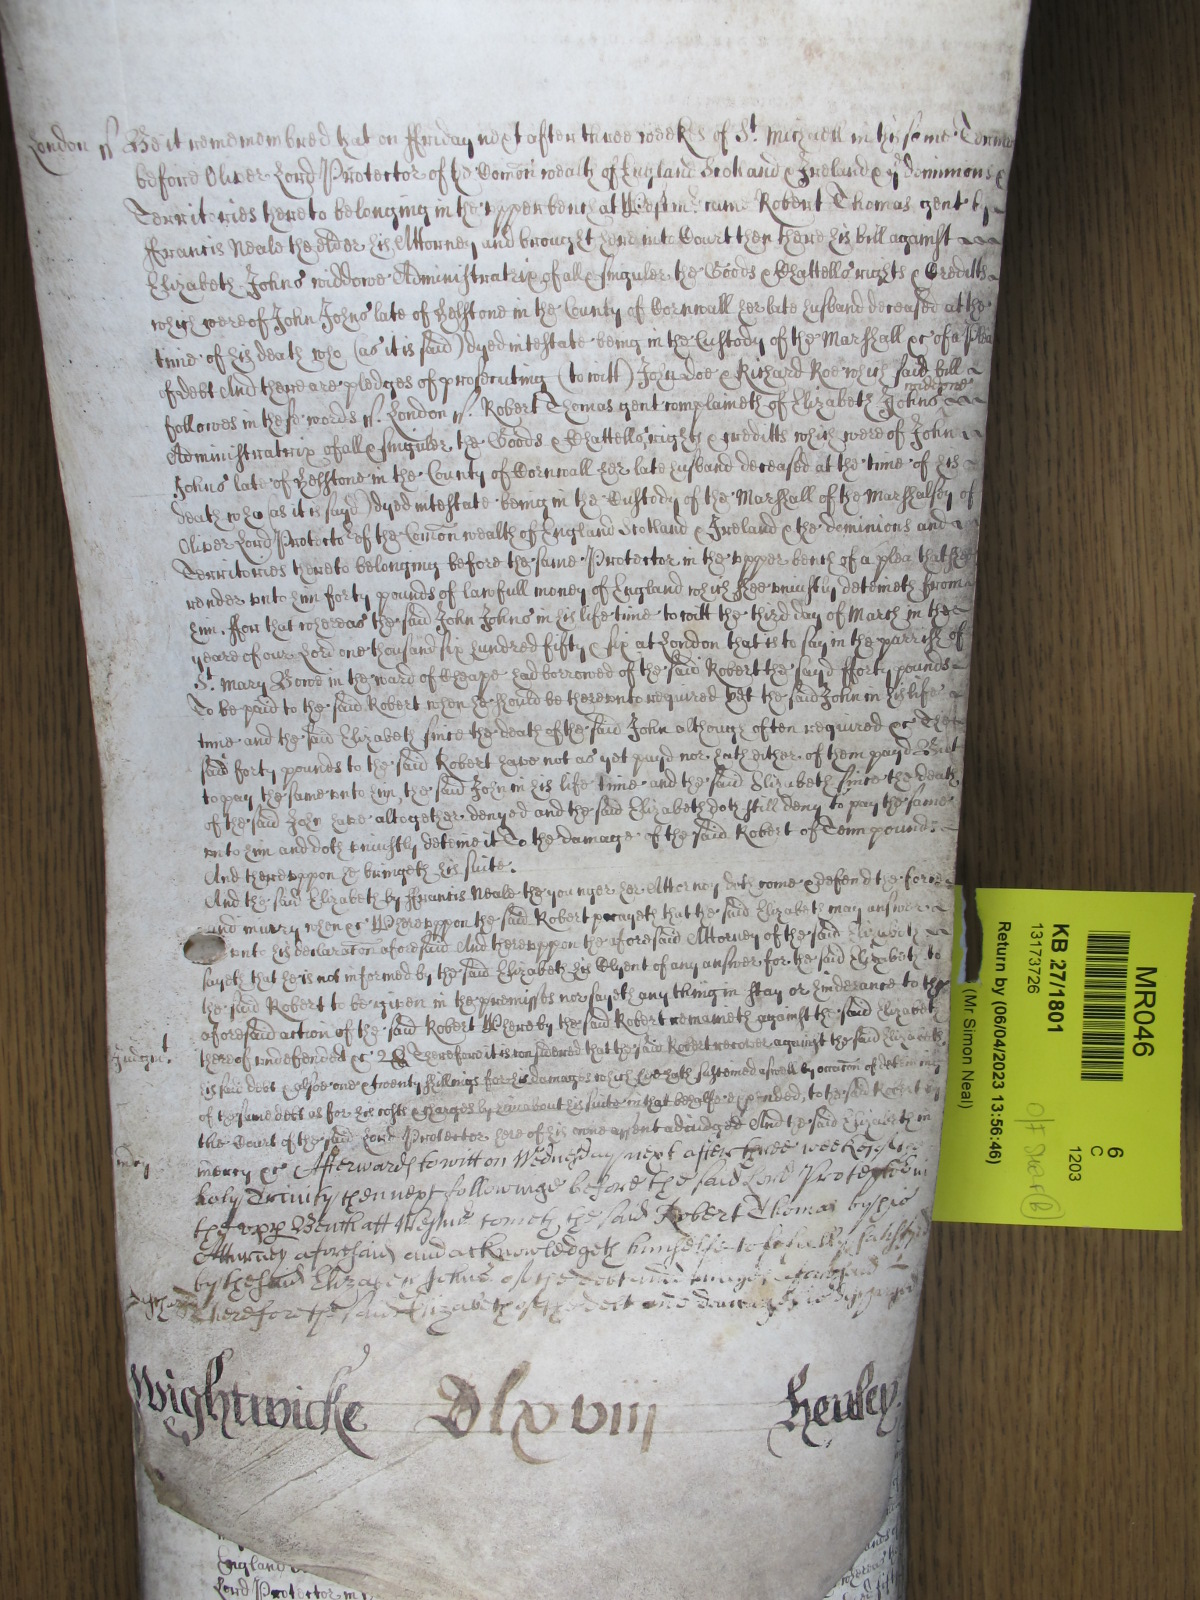 London ss Be it remembred that on ffriday next after three weekes of St. Michaell in this same Terme
before Oliver Lord Protector of the Comon wealth of England Scotland & Ireland & ye dominions &
Territories thereto belonging in the upper bench at Westmr. came Robert Thomas gent by
ffrancis Neale the elder his Attorney and brought here into Court then there his bill against
Elizabeth Johns widdowe Administratrix of all & singuler the Goods & Chattells rights & Creditts
which were of John Johns late of Helstone in the County of Cornwall her late husband deceased at the
time of his death who (as it is said) dyed intestate being in the Custody of the Marshall &c of a Plea
of debt And there are pledges of prosecuting (to witt) John Doe & Richard Roe which said bill
followes in these words ss. London ss. Robert Thomas gent complaineth of Elizabeth Johns widdowe
Administratrix of all & singuler the Goods & Chattells rights & creditts which were of John
Johns late of Helstone in the County of Cornwall her late husband deceased at the time of his
death who (as it is sayd) dyed intestate being in the Custody of the Marshall of the Marshalsey of
Oliver Lord Protector of the Comon wealth of England Scotland & Ireland & the dominions and
Territories thereto belonging before the same Protector in the upper bench of a plea that shee
render unto him forty pounds of lawfull money of England which shee uniustly deteineth from
him. ffor that whereas the said John Johns in his life time to witt the third day of March in the
yeare of our Lord one thousand six hundred fifty & six at London that is to say in the parrish of
St. Mary Bowe in the ward of Cheape had borrowed of the said Robert the sayd fforty pounds
To be paid to the said Robert when he should be thereunto required yet the said John in his life
time and the said Elizabeth since the death of the said John although often required &c The
said forty pounds to the said Robert have not as yet payd nor hath either of them payd But
to pay the same unto him the said John in his life time and the said Elizabeth since the death
of the said John have altogether denyed and the said Elizabeth doth still deny to pay the same
unto him and doth uniustly deteine it To the damage of the said Robert of Tenn pounds
And thereuppon he bringeth his suite.
And the said Elizabeth by ffrancis Neale the younger her Attorney doth come & defend the force
and iniury when &c Whereuppon the said Robert prayeth that the said Elizabeth may answer
unto his declaracon aforesaid And thereuppon the aforesaid Attorney of the said Elizabeth
sayeth that he is not informed by the said Elizabeth his Clyent of any answer for the said Elizabeth to
the said Robert to be given in the premisses nor sayeth any thing in stay or hinderance to the
aforesaid action of the said Robert Whereby the said Robert remaineth against the said Elizabeth
Judgmt. thereof undefended &c Therefore it is considered that the said Robert recover against the said Elizabeth
his said debt & alsoe one & twenty shillings for his damages which hee hath susteined aswell by occacon of deteineing
of the same debt as for his costs & charges by him about his suite in that behalfe expended, to the said Robert by
the Court of the said Lord Protector here of his owne assent adiudged And the said Elizabeth in
mercy mercy &c Afterwards to witt on Wednesday next after three weekes of the
holy Trinity then next followinge before the said Lord Protector in
the upp Bench att Westmr cometh the said Robert Thomas by his
Attorney aforesaid and acknowledgeth himselfe to be fully satisfyed
by the said Elizabeth Johns of the debt and damages aforesaid
Therefore the said Elizabeth of the debt and damages is discharged
Wightwicke Dlxviii Henley.
England
Lord Protector in
MR046
6
C
1203
KB 27/1801
13173726
Return by (06/04/2023 13:56:46)
(Mr Simon Neal)